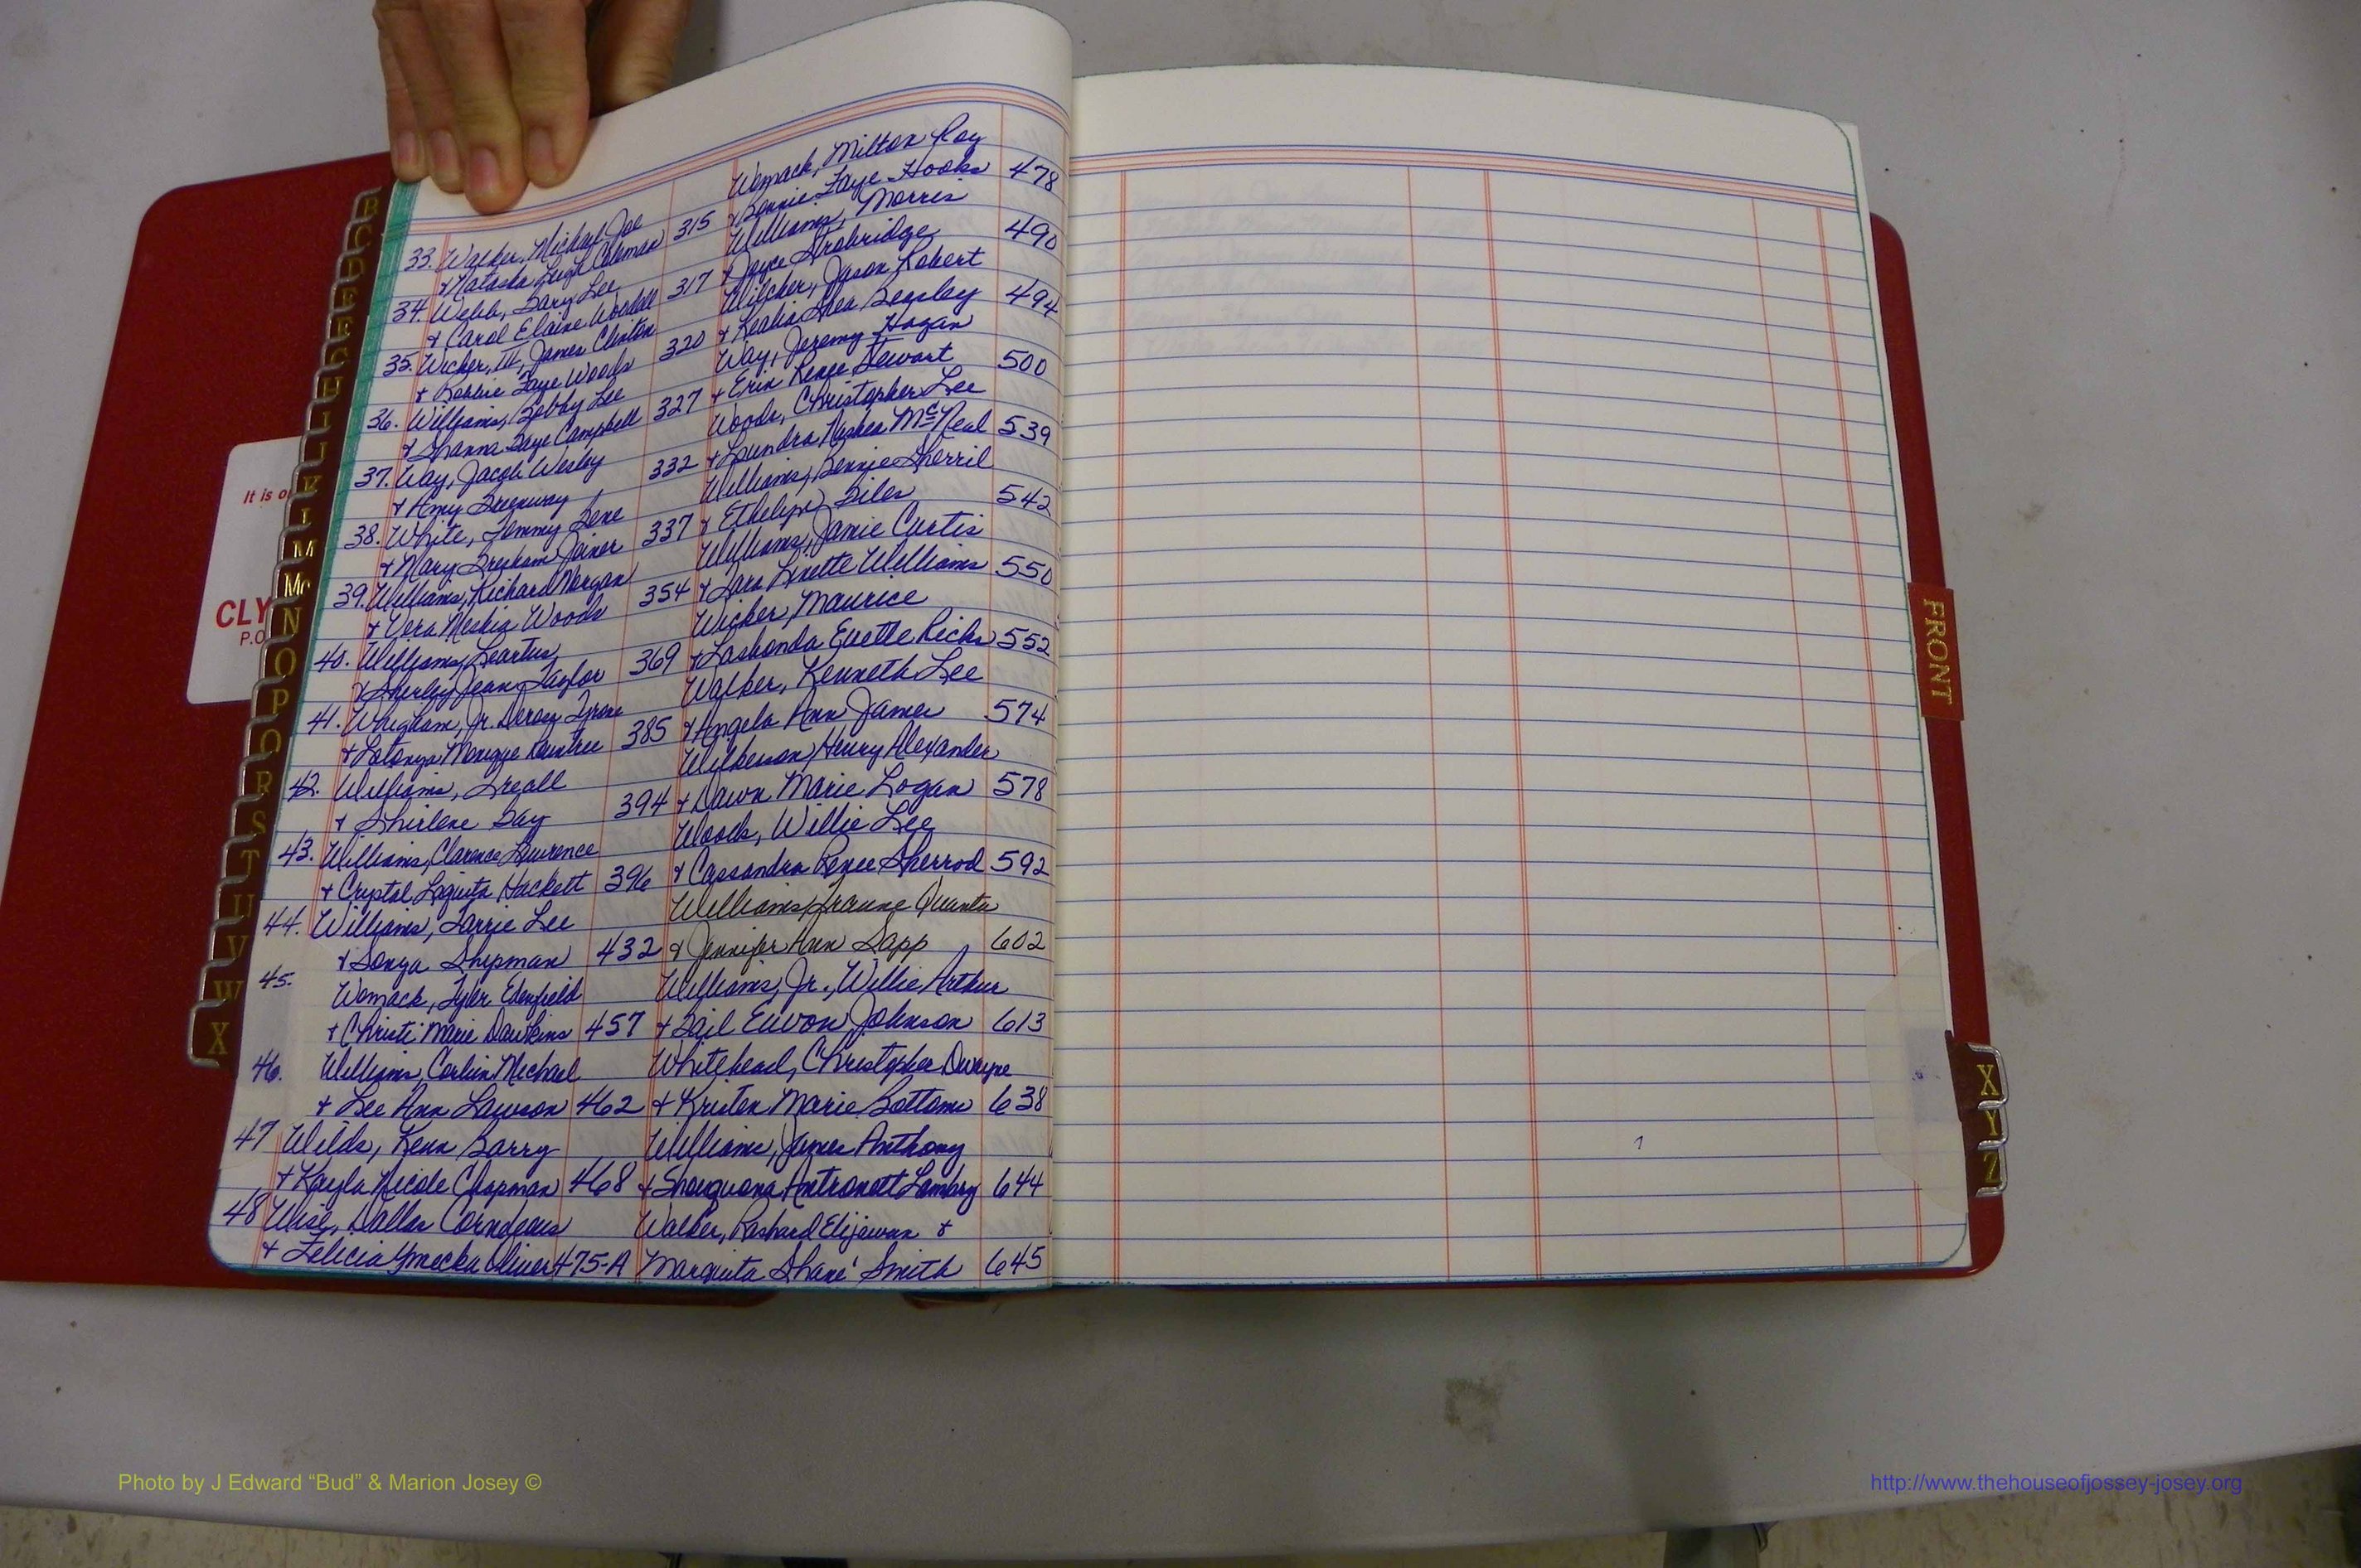 33. Walker, Michael Joe
+ Natasha Leigh Coleman 315
34. Webb, Gary Lee
+ Carol Elaine Woodall 317
35. Wicker, III, James Clinton
+ Robbie Faye Woods 320
36. Williams, Bobby Lee
+ Shanna Gaye Campbell 327
37. Way, Jacob Wesley
+ Amy Greenway 332
38. White, Jimmy Gene
+ Mary Gresham Joiner 337
39. Williams, Richard Morgan
+ Vera Woods 354
40. Williams, Leartus
+ Shirley Jean Taylor 369
41. Whigham, Jr. Leroy Tyrone
+ Latonya Monique Rountree 385
42. Williams, Greall
+ Shirlene Gay 394
43. Williams, Clarence Lawrence
+ Crystal Hackett 396
44. Williams, Larrie Lee
+ Sonya Shipman 432
45. Womack, Tyler Edenfield
+ Christi Marie Dawkins 457
46. Williams, Corbin Michael
+ Lee Ann Lawson 462
47 Wilds, Kenn Barry
+ Kayla Nicole Chapman 468
48 Wise, Dallas
+ Felicia Oliver 475-A
Womack, Milton Roy
+ Bonnie Faye Hooks 478
Williams, Morris
+ Joyce Strobridge 490
Wilcher, Jason Robert
+ Keahia Shea Beasley 494
Way, Jeremy Hogan
+ Erin Renee Stewart 500
Woods, Christopher Lee
+ Laundra McNeal 539
Williams, Bennie Sherril
+ Ethelyn Giles 542
Williams, Jamie Curtis
+ Lara Linette Williams 550
Wicker, Maurice
+ Lashonda Evette Ricks 552
Walker, Kenneth Lee
+ Angela Ann James 574
Wilkerson, Henry Alexander
+ Dawn Marie Logan 578
Woods, Willie Lee
+ Cassandra Renee Sherrod 592
Williams, Quanta
+ Jennifer Ann Sapp 602
Williams, Jr., Willie Arthur
+ Gail Euvon Johnson 613
Whitehead, Christopher Dwayne
+ Kristen Marie Bottoms 638
Williams, James Anthony
+ Shaquona Antronett Lambry 644
Walker, Rashard Elijawan +
Marquita Shane' Smith 645
It is o
CLY
P.O
B
C
D
E
F
G
H
I
J
K
L
M
Mc
N
O
P
Q
R
S
T
U
V
W
X
FRONT
X
Y
Z
Photo by J Edward “Bud” & Marion Josey ©
http://www.thehouseofjossey-josey.org